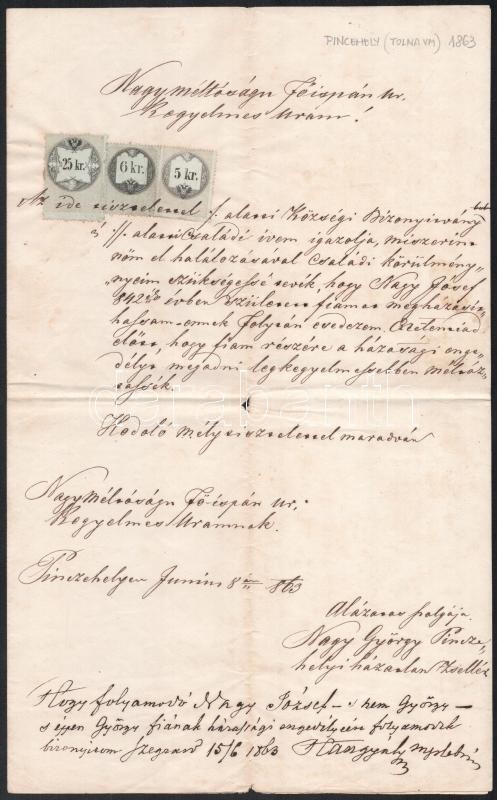 PINCEHELY (TOLNA VM) 1863
Nagy méltóságu Főispán Ur,
Kegyelmes Uram!
25 kr.
6 kr.
5 kr.
Az ide tisztelettel ·/. alatti Községi Bizonyitvány
s //. alatti Családi ivem igazolja, miszerint
nőm el halálozásával Családi körülmény„
„nyeim szükségessé tevék, hogy Nagy József
842 évben született fiamat megházasit„
hassam ennek folytán esedezem
előtt, hogy fiam részére a házassági enge„
délyt, megadni legkegyelmesebben méltóz„
tassék.
Hódoló mély tisztelettel maradván
Nagy Méltóságu Főispán Ur,
Kegyelmes Uramnak.
Pinczehelyen Junius 8án 863
Alázatos szolgája
Nagy György Pincze„
helyi házatlan Zsellér
Hogy folyamodó Nagy József – s nem György –
s éppen György fiának házassági engedélyért folyamodik
bizonyitom Szegzard 15/6 1863